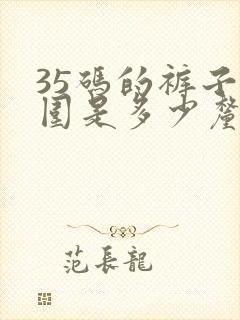 35碼的裤子
围是多少釐
范長龍